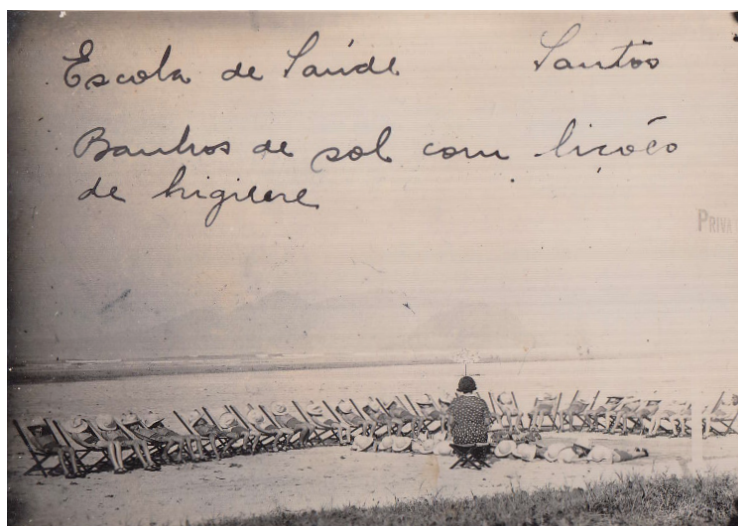 Escola de Saúde Santos
Banhos de sol com lições
de higiene
PRIVA